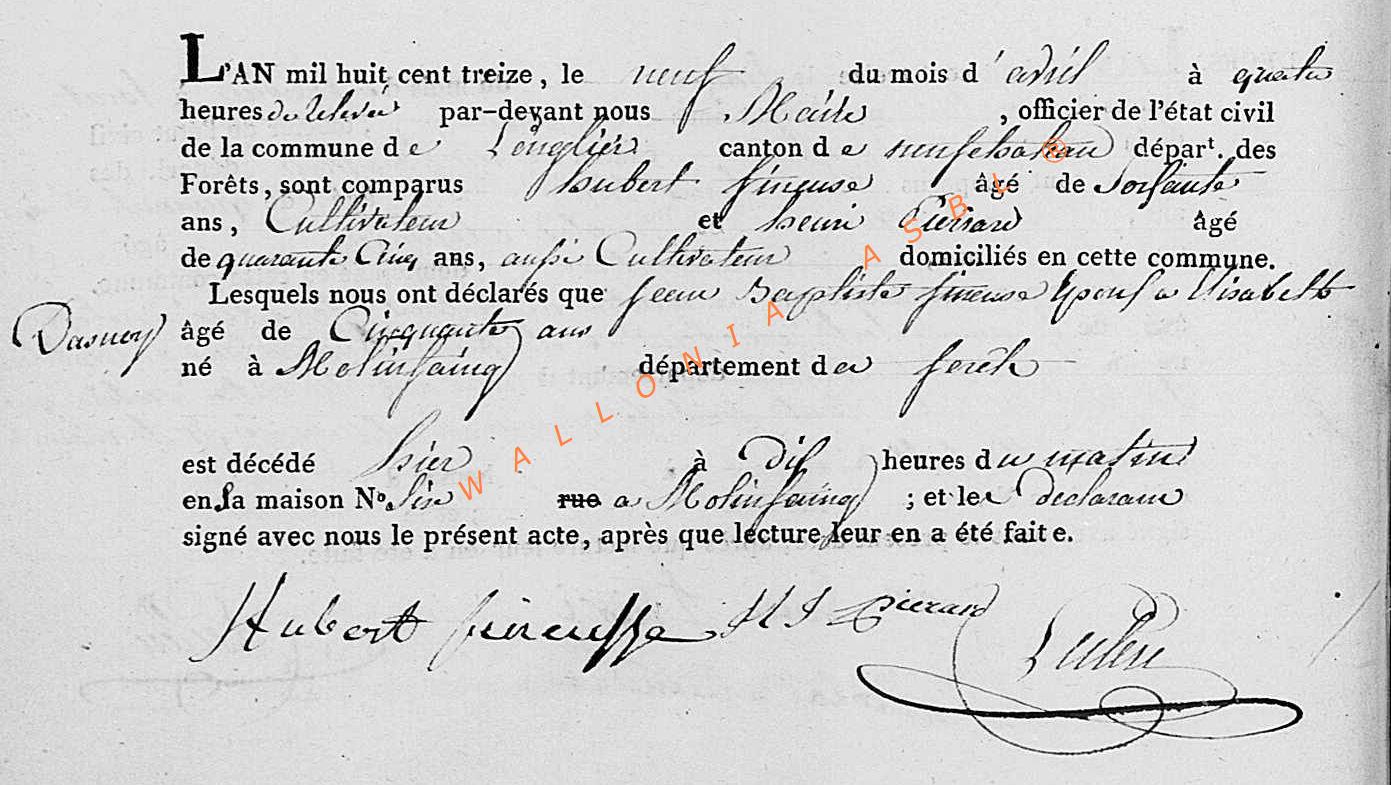 L'AN mil huit cent treize, le neuf du mois d'avril à quatre
heures de relevée par-devant nous Maire, officier de l'état civil
de la commune de Longlier canton de neufchateau départ. des
Forêts, sont comparus hubert fineuse âgé de Soisante
ans, Cultivateur et henri Pierard âgé
de quarante Cinq ans, aussi Cultivateur domiciliés en cette commune.
Lesquels nous ont déclarés que jean Baptiste fineuse Epoux a Elisabeth
Dasnoy âgé de Cinquante ans
né à Molinfaing département des forêts
est décédé hier à dix heures du matin
en sa maison No. Six rue a Molinfaing ; et les declarans
signé avec nous le présent acte, après que lecture leur en a été faite.
Hubert fineusse H J Pierard
WALLONIA ASBL ®